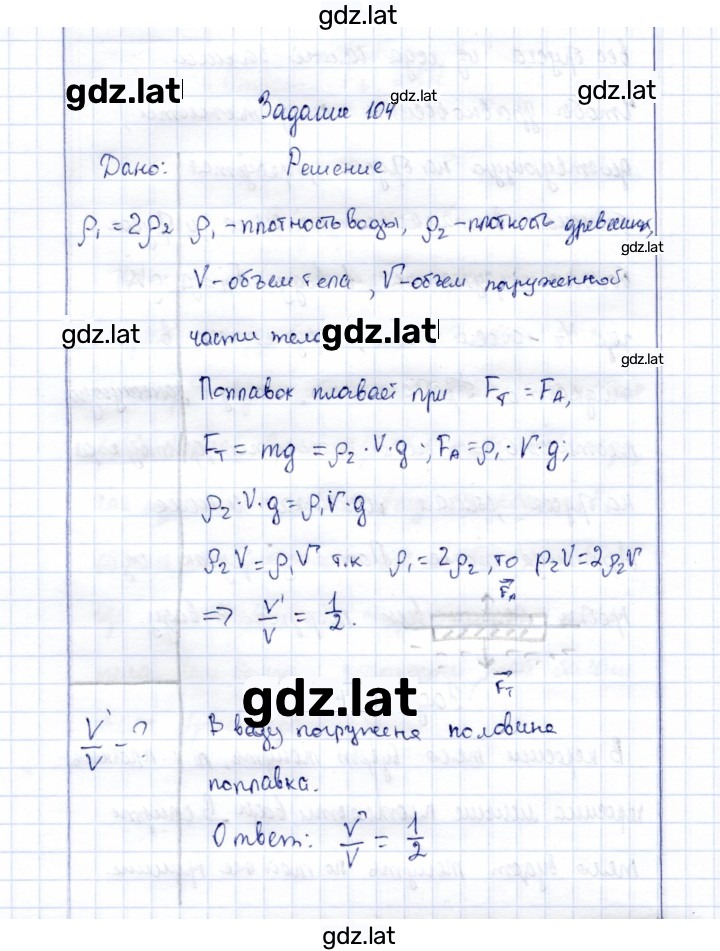 gdz.lat
gdz.lat gdz.lat gdz.lat
Задание 104
Дано: Решение
ρ₁ = 2ρ₂ ρ₁ - плотность воды, ρ₂ - плотность древесины,
gdz.lat
V - объем тела, V' - объем погруженной
части тела
gdz.lat gdz.lat gdz.lat
Поплавок плавает при Fт = FA,
Fт = mg = ρ₂·V·g; FA = ρ₁·V'·g;
ρ₂·V·g = ρ₁V'·g
ρ₂V = ρ₁V' т.к ρ₁ = 2ρ₂, то ρ₂V = 2ρ₂V'
=> V'/V = 1/2.
FA
Fт
gdz.lat
V'/V - ? В воду погружена половина
поплавка.
Ответ: V'/V = 1/2
gdz.lat